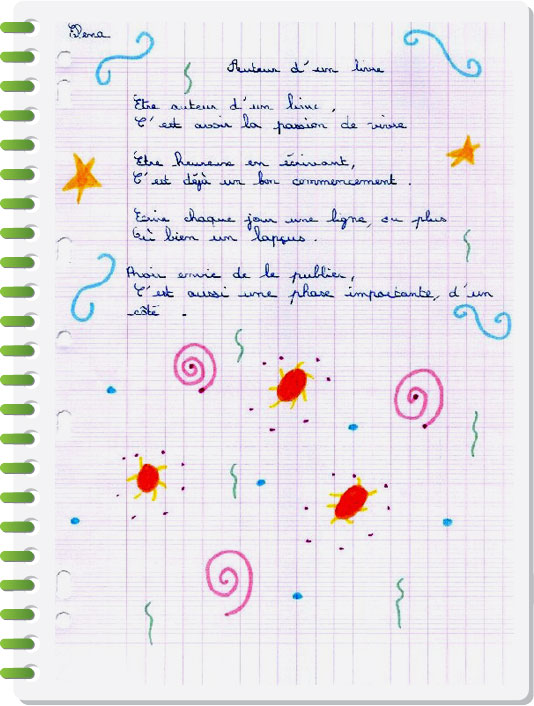 Dena
Auteur d'un livre
Etre auteur d'un livre,
C'est avoir la passion de vivre
Etre heureuse en écrivant,
C'est déjà un bon commencement.
Ecrire chaque jour une ligne, ou plus
Où bien un lapsus.
Avoir envie de le publier,
C'est aussi une phase importante, d'un
côté.